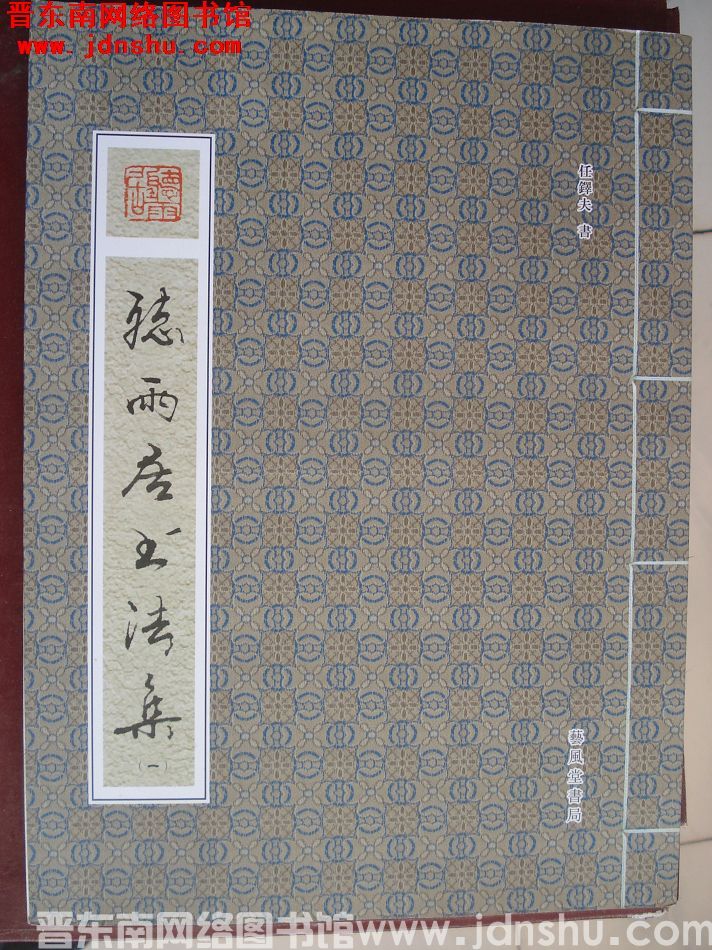 晋东南网络图书馆
www.jdnshu.com
任鐸夫 書
聽雨居书法集
一
藝風堂書局
晋东南网络图书馆 www.jdnshu.com